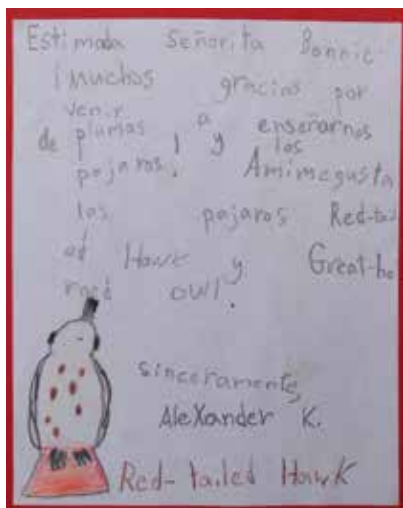 Estimada Señorita Bonnie
¡Muchos gracias por
venir a enseñarnos
de plumas, y los
pajaros. Amimegusta
los pajaros Red-tail
ed Hawk y Great-ho
rned owl.
sinceramente,
AleXander K.
Red-tailed HawK